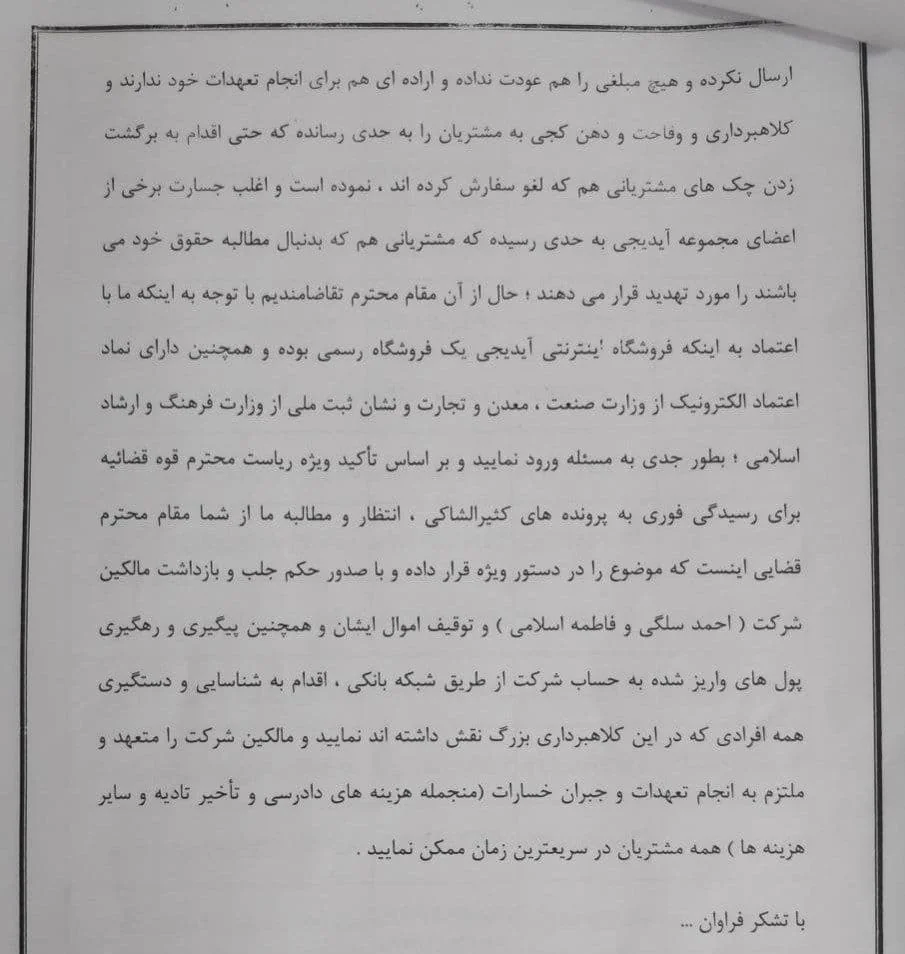 ارسال نکرده و هیچ مبلغی را هم عودت نداده و اراده ای هم برای انجام تعهدات خود ندارند و
کلاهبرداری و وقاحت و دهن کجی به مشتریان را به حدی رسانده که حتی اقدام به برگشت
زدن چک های مشتریانی هم که لغو سفارش کرده اند ، نموده است و اغلب جسارت برخی از
اعضای مجموعه آیدیجی به حدی رسیده که مشتریانی هم که بدنبال مطالبه حقوق خود می
باشند را مورد تهدید قرار می دهند ؛ حال از آن مقام محترم تقاضامندیم با توجه به اینکه ما با
اعتماد به اینکه فروشگاه اینترنتی آیدیجی یک فروشگاه رسمی بوده و همچنین دارای نماد
اعتماد الکترونیک از وزارت صنعت ، معدن و تجارت و نشان ثبت ملی از وزارت فرهنگ و ارشاد
اسلامی ؛ بطور جدی به مسئله ورود نمایید و بر اساس تأکید ویژه ریاست محترم قوه قضائیه
برای رسیدگی فوری به پرونده های کثیرالشاکی ، انتظار و مطالبه ما از شما مقام محترم
قضایی اینست که موضوع را در دستور ویژه قرار داده و با صدور حکم جلب و بازداشت مالکین
شرکت ( احمد سلگی و فاطمه اسلامی ) و توقیف اموال ایشان و همچنین پیگیری و رهگیری
پول های واریز شده به حساب شرکت از طریق شبکه بانکی ، اقدام به شناسایی و دستگیری
همه افرادی که در این کلاهبرداری بزرگ نقش داشته اند نمایید و مالکین شرکت را متعهد و
ملتزم به انجام تعهدات و جبران خسارات (منجمله هزینه های دادرسی و تأخیر تادیه و سایر
هزینه ها ) همه مشتریان در سریعترین زمان ممکن نمایید .
با تشکر فراوان ...